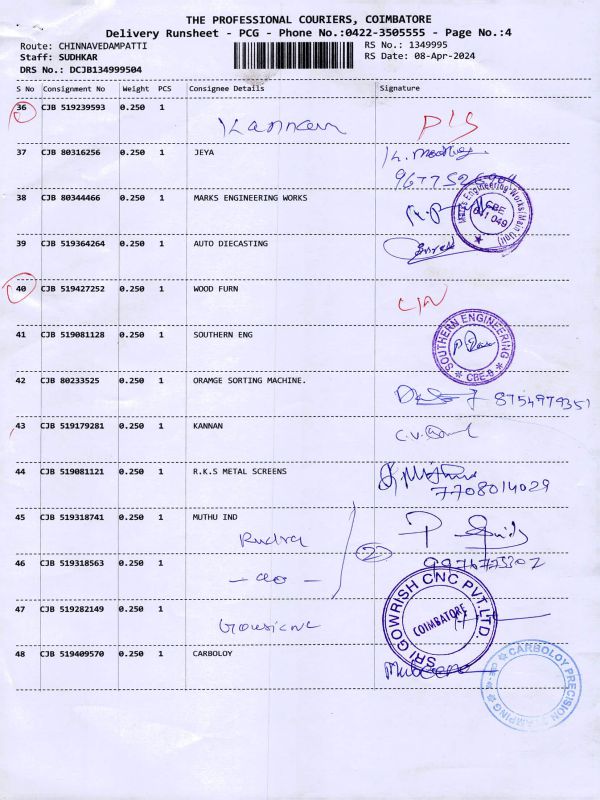 THE PROFESSIONAL COURIERS, COIMBATORE
Delivery Runsheet - PCG - Phone No.:0422-3505555 - Page No.:4
Route: CHINNAVEDAMPATTI RS No.: 1349995
Staff: SUDHKAR RS Date: 08-Apr-2024
DRS No.: DCJB134999504
S No Consignment No Weight PCS Consignee Details Signature
36 CJB 519239593 0.250 1
Kannan
37 CJB 80316256 0.250 1 JEYA
38 CJB 80344466 0.250 1 MARKS ENGINEERING WORKS
39 CJB 519364264 0.250 1 AUTO DIECASTING
40 CJB 519427252 0.250 1 WOOD FURN
41 CJB 519081128 0.250 1 SOUTHERN ENG
SOUTHERN ENGINEERING
CBE-6
42 CJB 80233525 0.250 1 ORAMGE SORTING MACHINE.
8754979351
43 CJB 519179281 0.250 1 KANNAN
44 CJB 519081121 0.250 1 R.K.S METAL SCREENS
7708014029
45 CJB 519318741 0.250 1 MUTHU IND
Rudra
2
46 CJB 519318563 0.250 1
- do -
47 CJB 519282149 0.250 1
SRI GOWRISH CNC PVT.LTD
COIMBATORE
48 CJB 519409570 0.250 1 CARBOLOY
CARBOLOY PRECISION STAMPING